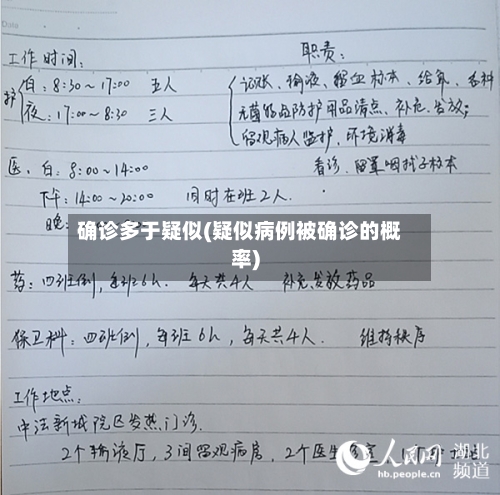 工作时间:
职责:
护 白:8:30~17:00 五人
记账、输液、留血标本、给氧、各科
夜:17:00~8:30 三人
无菌物品防护用品清点、补充、发放;
留观病人监护,环境消毒
医、白:8:00~14:00
看诊、留置咽拭子标本
下午:14:00~20:00 同时在班2人.
晚:
确诊多于疑似(疑似病例被确诊的概
率)
药:四班倒,每班6h. 每天共4人 补充、发放药品
保卫科:四班倒,每班6h,每天共4人. 维持秩序
工作地点:
中法新城院区发热门诊.
2个输液厅,3间留观病房,2个医生
人民网 湖北
hb.people.cn 频道